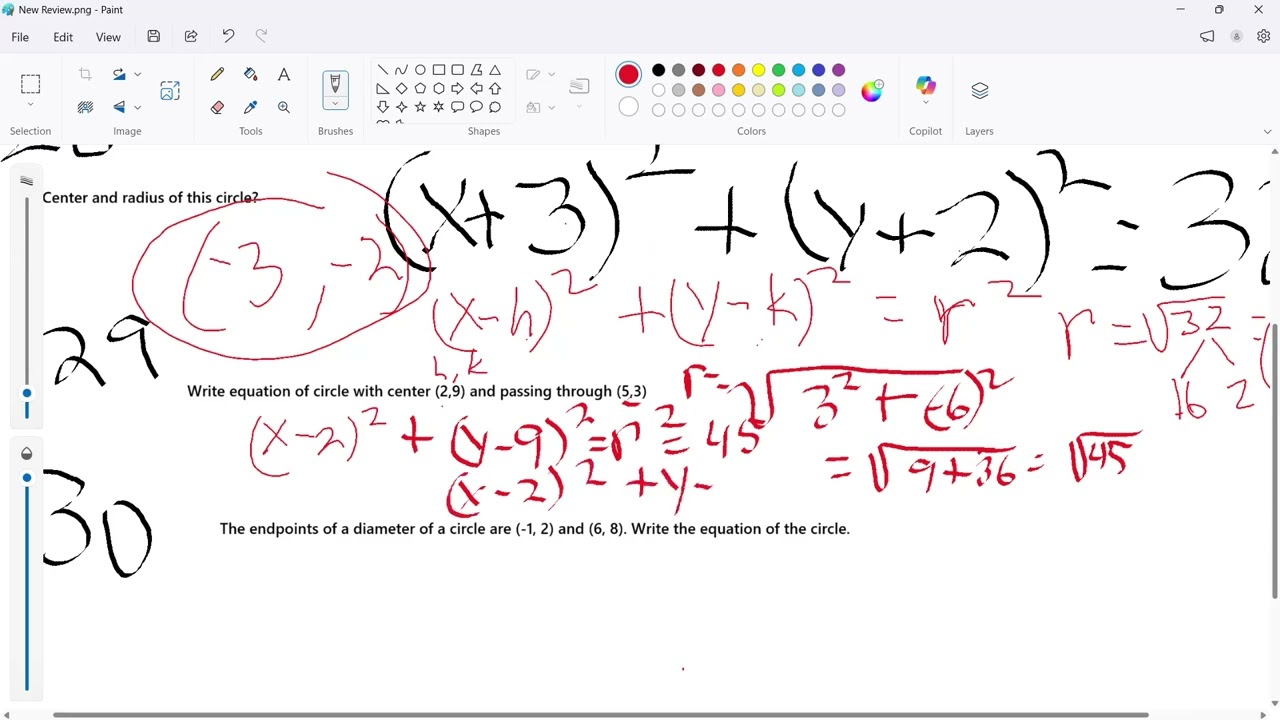 New Review.png - Paint
File Edit View
Selection Image Tools Brushes Shapes Colors Copilot Layers
Center and radius of this circle?
(x+3)² + (y+2)² = 32
(-3, -2)
(x-h)² + (y-k)² = r² r = √32 =
h, k
16 2
29
Write equation of circle with center (2,9) and passing through (5,3)
r = √3² + (-6)²
(x-2)² + (y-9)² = r² = 45
= √9+36 = √45
(x-2)² + y-
30
The endpoints of a diameter of a circle are (-1, 2) and (6, 8). Write the equation of the circle.